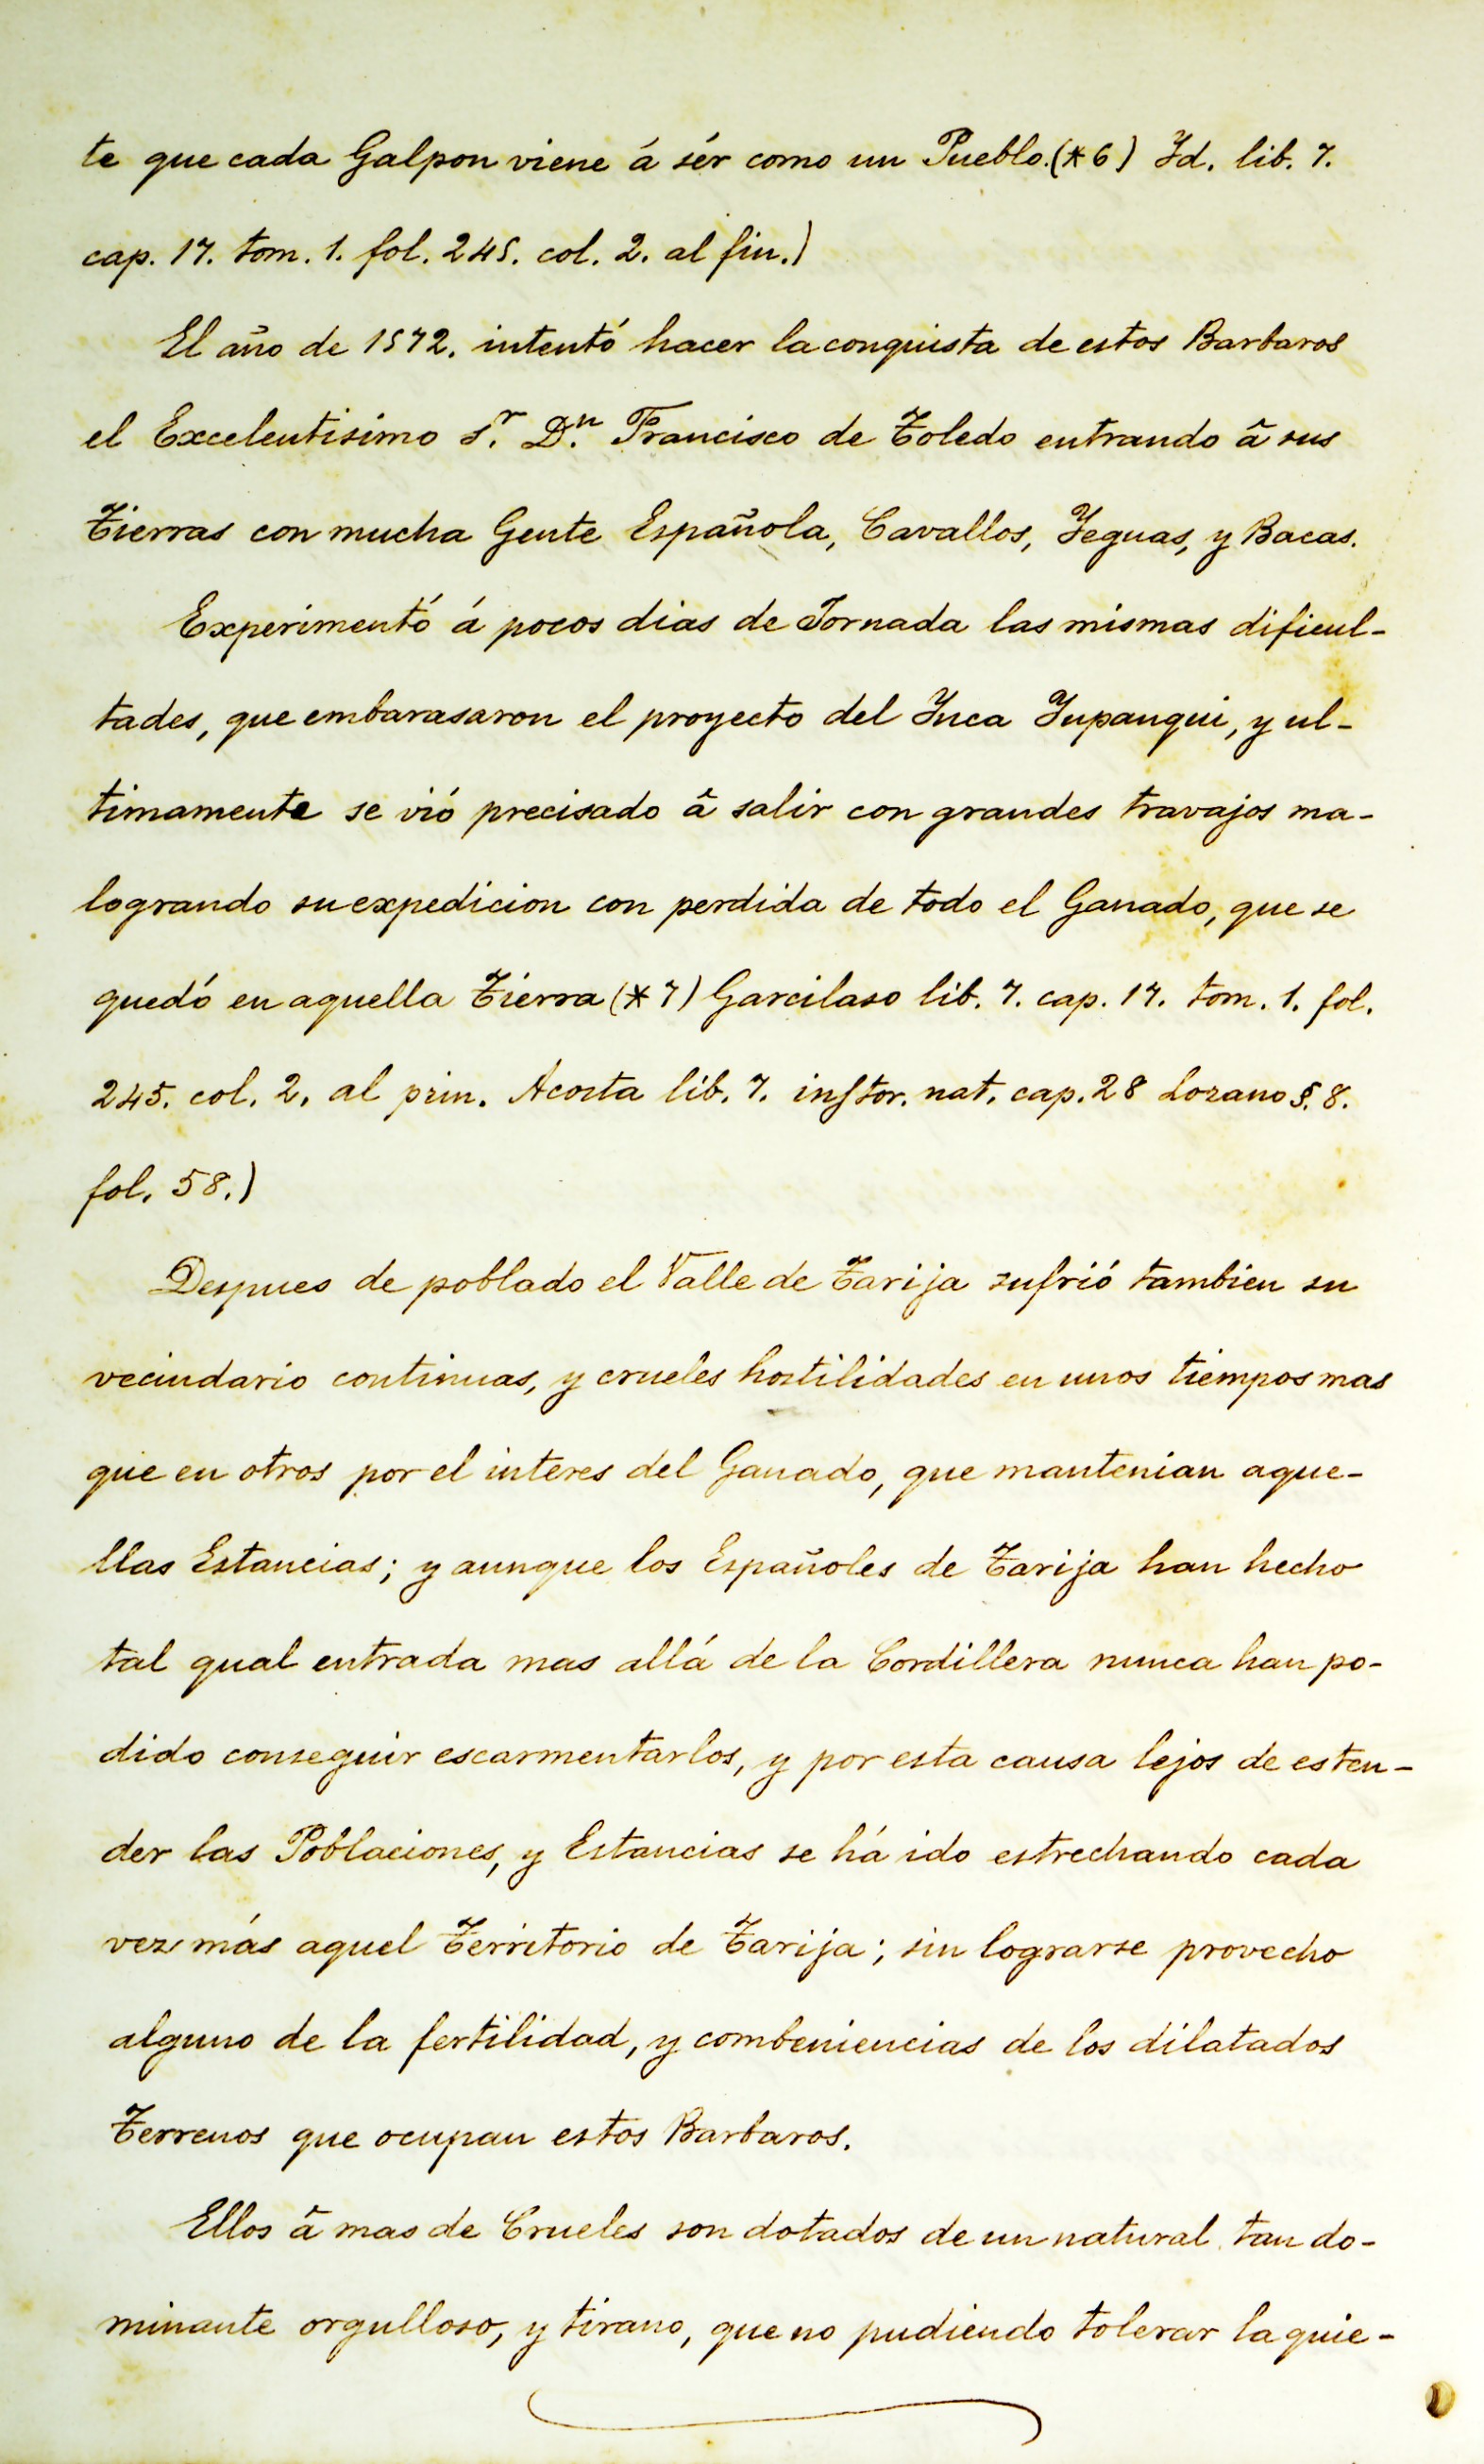 te que cada Galpon viene á sér como un Pueblo.(*6) Yd. lib. 7.
cap. 17. tom. 1. fol. 245. col. 2. al fin.)
El año de 1572. intentó hacer la conquista de estos Barbaros
el Excelentisimo Sr. Dn. Francisco de Toledo entrando â sus
Tierras con mucha Gente Española, Cavallos, Yeguas, y Bacas.
Experimentó á pocos dias de Jornada las mismas dificul-
tades, que embarasaron el proyecto del Ynca Yupanqui, y ul-
timamente se vió precisado â salir con grandes travajos ma-
logrando su expedicion con perdida de todo el Ganado, que se
quedó en aquella Tierra (*7) Garcilaso lib. 7. cap. 17. tom. 1. fol.
245. col. 2. al prin. Acosta lib. 7. instor. nat. cap. 28 Lozano §. 8.
fol. 58.)
Despues de poblado el Valle de Tarija sufrió tambien su
vecindario continuas, y crueles hostilidades en unos tiempos mas
que en otros por el interes del Ganado, que mantenian aque-
llas Estancias; y aunque los Españoles de Tarija han hecho
tal qual entrada mas allá de la Cordillera nunca han po-
dido conseguir escarmentarlos, y por esta causa lejos de esten-
der las Poblaciones, y Estancias se há ido estrechando cada
vez más aquel Territorio de Tarija; sin lograrse provecho
alguno de la fertilidad, y combeniencias de los dilatados
Terrenos que ocupan estos Barbaros.
Ellos â mas de Crueles son dotados de un natural tan do-
minante orgulloso, y tirano, que no pudiendo tolerar la quie-